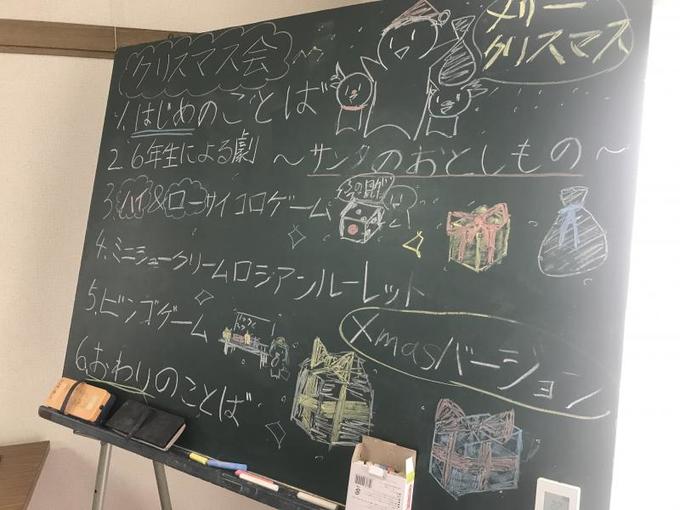 クリスマス会
メリー
クリスマス
1.はじめのことば
2.6年生による劇 ～サンタのおとしもの～
3.ハイ&ローサイコロゲーム
4.ミニシュークリームロシアンルーレット
5.ビンゴゲーム
Xmasバージョン
6.おわりのことば